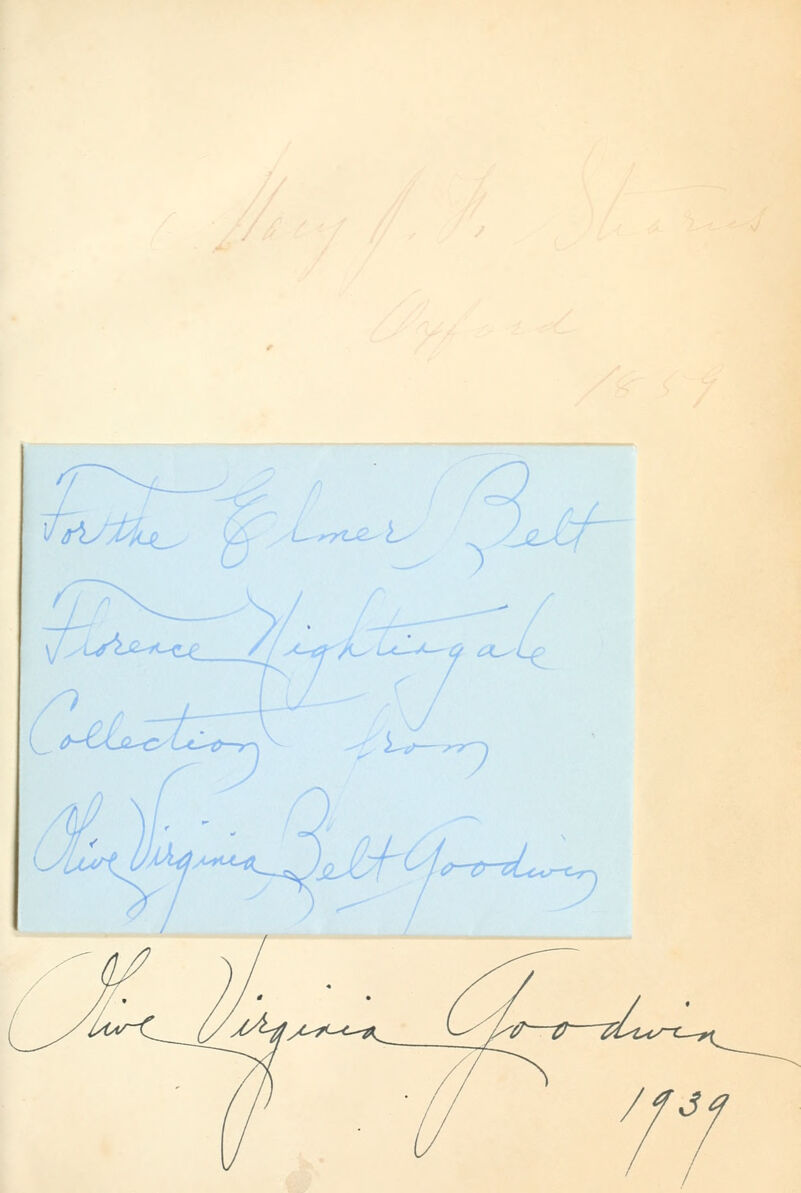 Mary J. F. Stearns
Oxford
1859
For the Elmer Belt
Florence Nightingale
Collection from
Olive Virginia Belt Goodwin
Olive Virginia Goodwin
1939